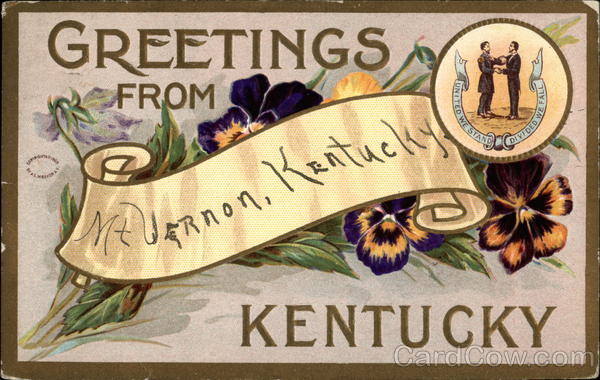 GREETINGS
FROM
Mt Vernon, Kentucky.
UNITED WE STAND DIVIDED WE FALL
KENTUCKY
CardCow.com